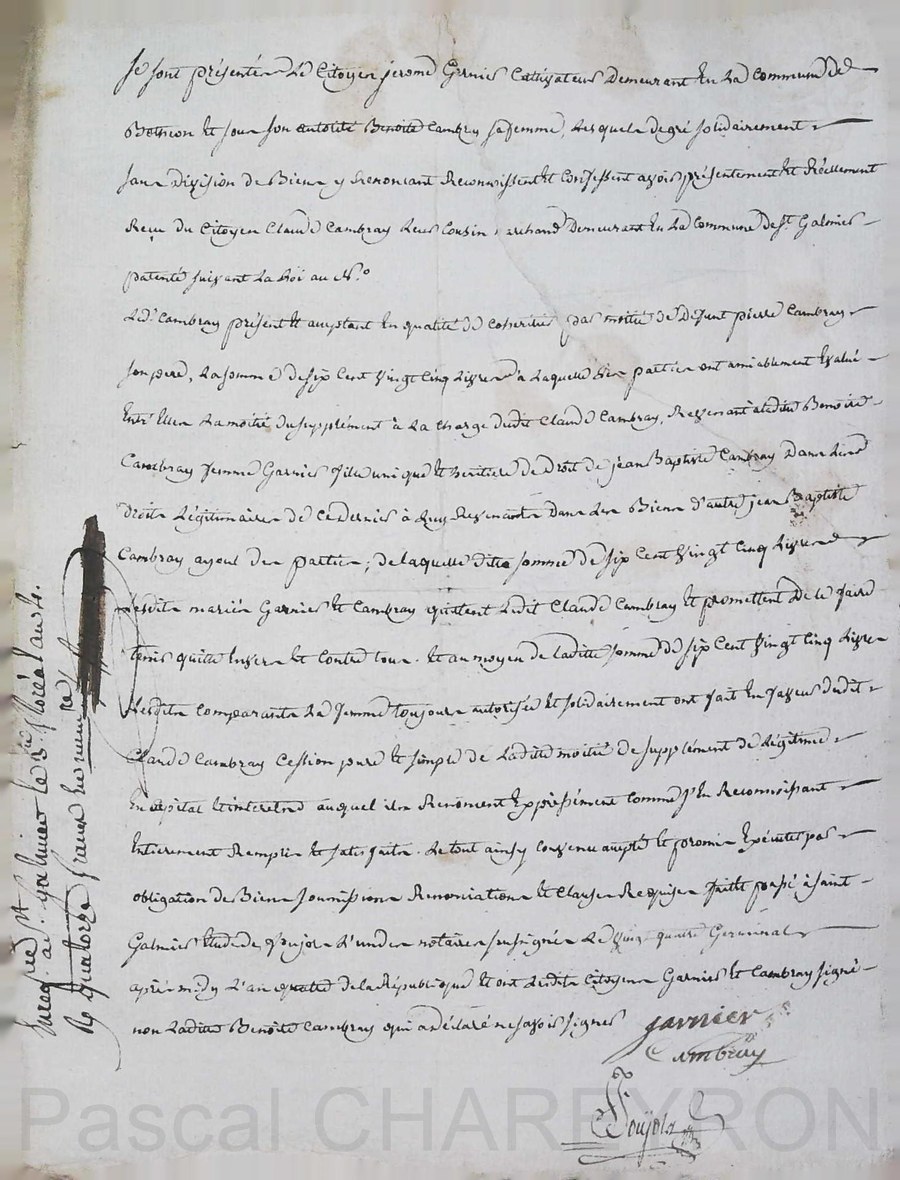 Se sont présentés Le Citoyen jerome Garnier Cultivateur Demeurant En La Commune De
Boisson Et sous son autorité Benoite Cambray sa femme, Lesquels de gré solidairement
sans Division de Biens y Renoncant Reconnoissent Et Confessent avoir présentement Et Réellement
Reçu du Citoyen Claude Cambray Leur Cousin marchand Demeurant En La Commune de St. Galmier
patenté suivant La Loi au N.o
Led.t Cambray présent Et acceptant En qualité de Coheritier par moitié de Defunt pierre Cambray
son pere, La somme de six Cent vingt Cinq Livres à Laquelle Les parties ont amiablement Evalué
Entr'Elles La moitié du supplément à La charge dudit Claude Cambray, Revenant à ladite Benoite
Cambray femme Garnier fille unique Et heritiere de Droit de jean Baptiste Cambray Dans Les
Droits Légitimaires de Ce dernier à Luy Revenants Dans Les Biens d'autre jean Baptiste
Cambray ayeul des parties; de laquelle dite somme de six Cent vingt Cinq Livres
Lesdits mariés Garnier Et Cambray quitent Ledit Claude Cambray Et promettent De le faire
tenir quitte Envers Et Contre tous. Et au moyen de Ladite somme de six Cent vingt Cinq Livres
Lesdits Comparants La femme toujours autorisée Et solidairement ont fait En faveur dudit
Claude Cambray Cession pure Et simple de Ladite moitié de supplément de Légitime
En Capital Et interets auquel ils Renoncent Expressément Comme s'En Reconnoissant
Entierement Remplis Et satisfaits. Le tout ainsy Convenu accepté Et promis Exécuter par
obligation de Biens soumissions Renonciations Et Clauses Requises faitt passé à saint
Galmier Etude de foujols L'un des notaires soussignés Le vingt quatre Germinal
après midy L'an quatre de la République Et ont Lesdits Citoyens Garnier Et Cambray signé
non Ladite Benoite Cambray qui a déclaré ne savoir signer
garnier
Cambray
Foujols
Enregistré à St. galmier le 3 floréal an 4.
R quatorze francs
Pascal CHAREYRON